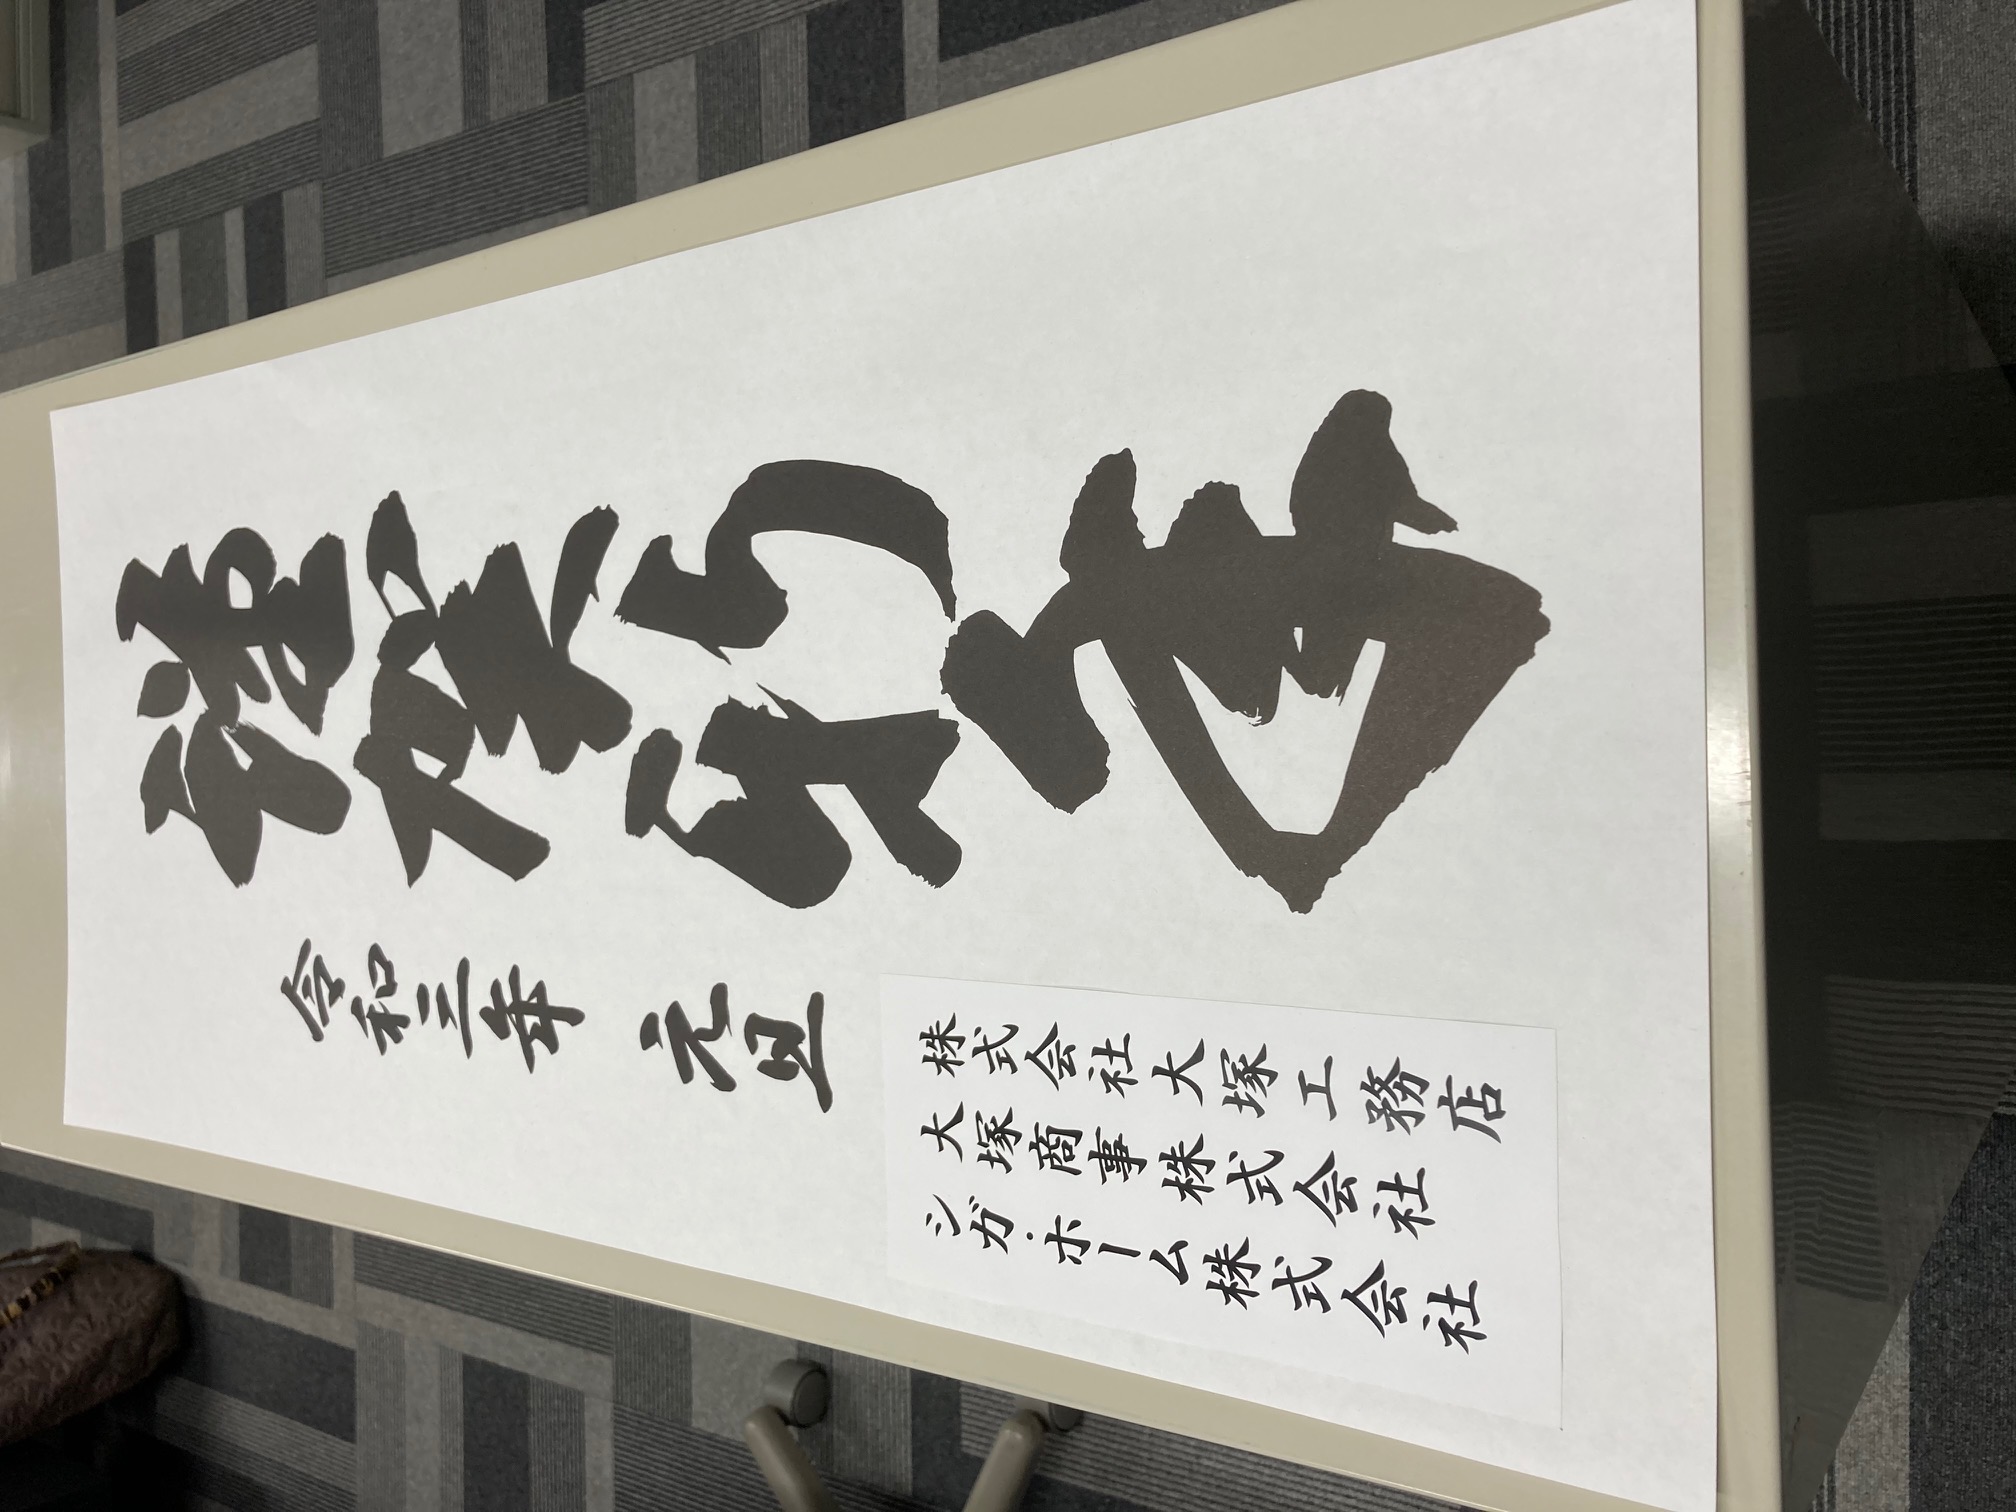 謹賀新年
令和三年 元旦
株式会社大塚工務店
大塚商事株式会社
シガ・ホーム株式会社